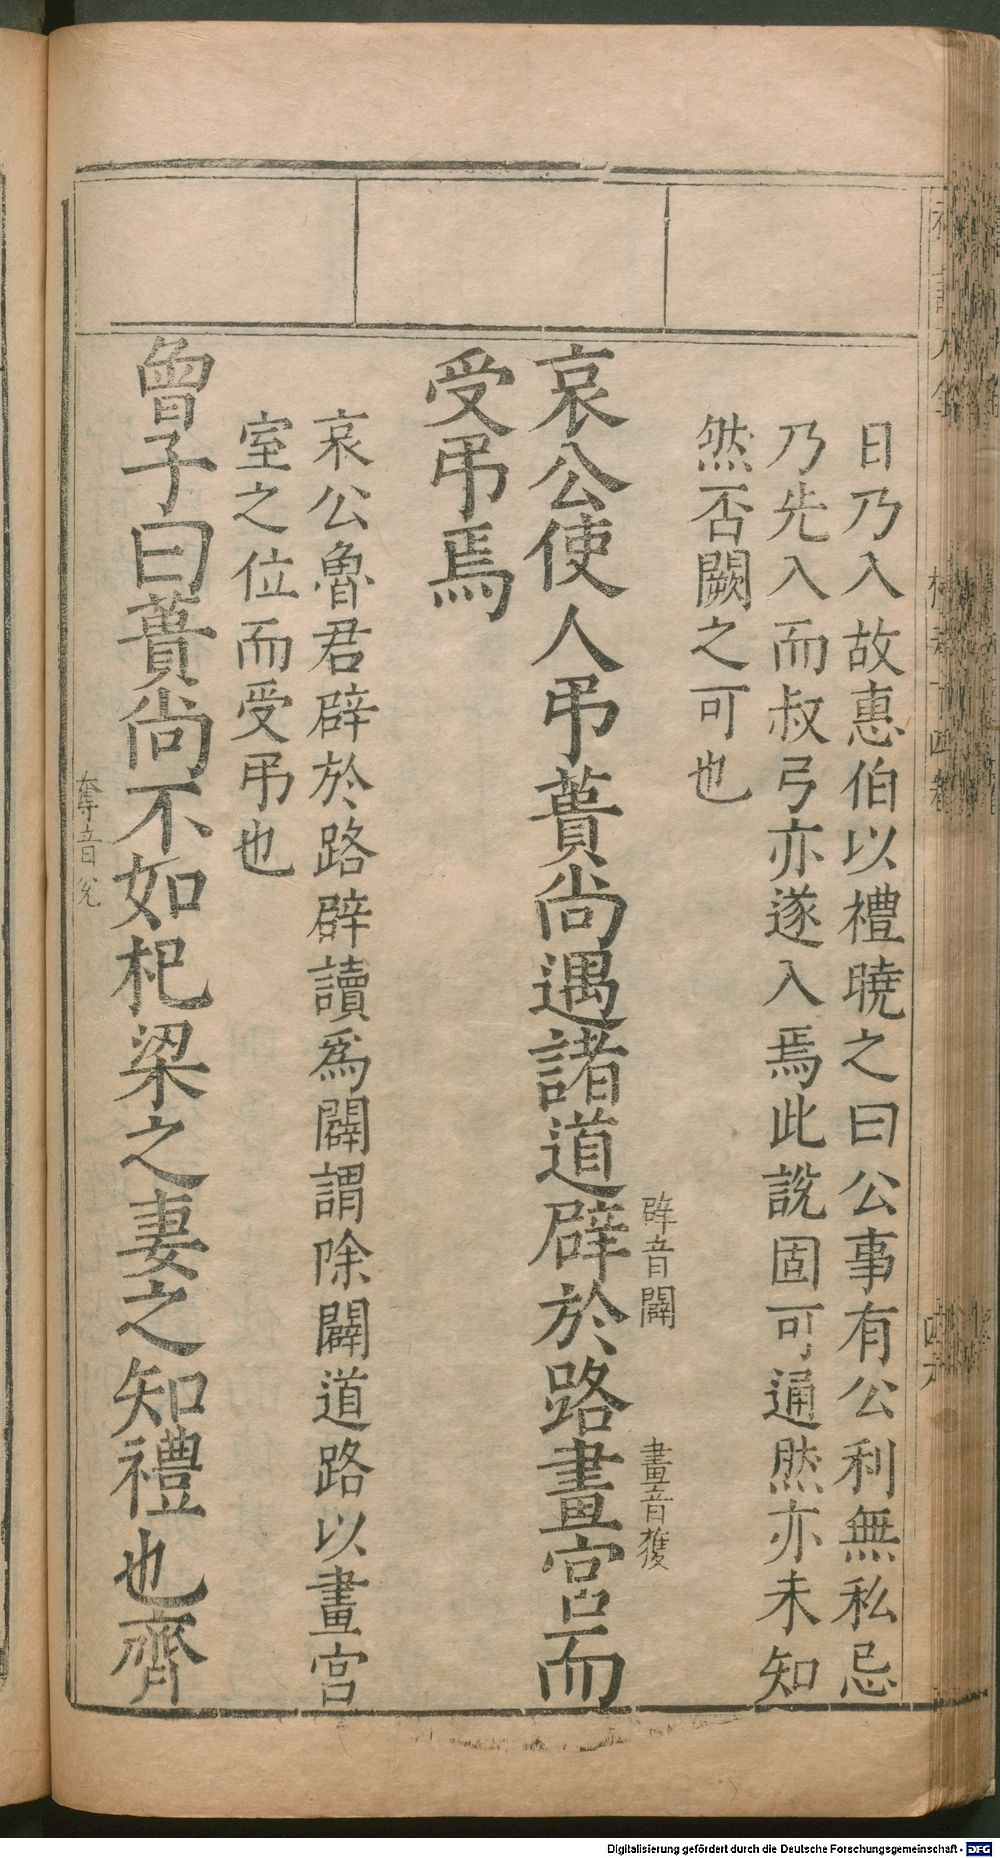 日乃入故惠伯以禮曉之曰公事有公利無私忌
乃先入而叔弓亦遂入焉此說固可通然亦未知
然否闕之可也
辟音闢
畫音獲
哀公使人弔蕢尚遇諸道辟於路畫宮而
受弔焉
哀公魯君辟於路辟讀爲闢謂除闢道路以畫宮
室之位而受弔也
曾子曰蕢尚不如杞梁之妻之知禮也齊
奪音兊
Digitalisierung gefördert durch die Deutsche Forschungsgemeinschaft - DFG